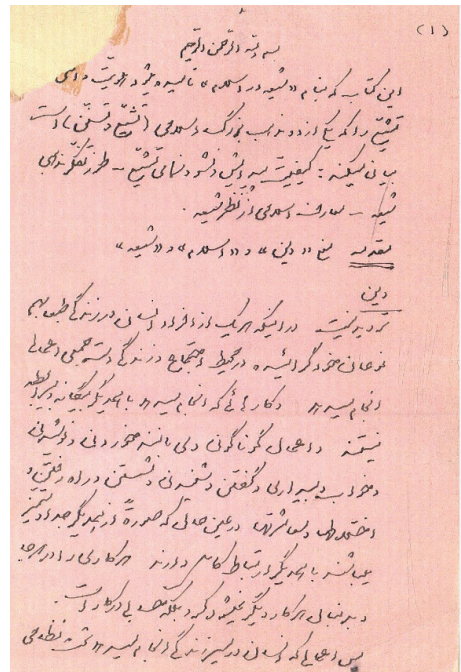 (۱)
بسم الله الرحمن الرحیم
این کتاب که بنام «شیعه در اسلام» نامیده میشود هویت واقعی
تشیع را که یکی از دو مذهب بزرگ اسلامی (تشیع و تسنن) است
بیان میکند : کیفیت پیدایش و نشو و نمای تشیع – طرز تفکر مذهبی
شیعه – معارف اسلامی از نظر شیعه .
مقدمه معنی «دین» و «اسلام» و «شیعه»
دین
تردید نیست در اینکه هر یک از افراد انسان در زندگی طبعا بهم
نوعان خود گرائیده در محیط اجتماع و زندگی دسته جمعی اعمالی
انجام میدهد و کارهائی که انجام میدهد با همدیگر بیگانه و بیرابطه
نیستند و اعمال گوناگون وی مانند خوردن و نوشیدن
و خواب و بیداری و گفتن و شنیدن و نشستن و راه رفتن و
اختلاط و معاشرتها در عین حالی که صورةً از همدیگر جدا و متمیز
میباشند با همدیگر ارتباط کامل دارند هر کاری را در هر جا
و بدنبال هر کار دیگر نمیشود کرد بلکه حسابی در کار است.
پس اعمالی که انسان در مسیر زندگی انجام میدهد تحت نظامی